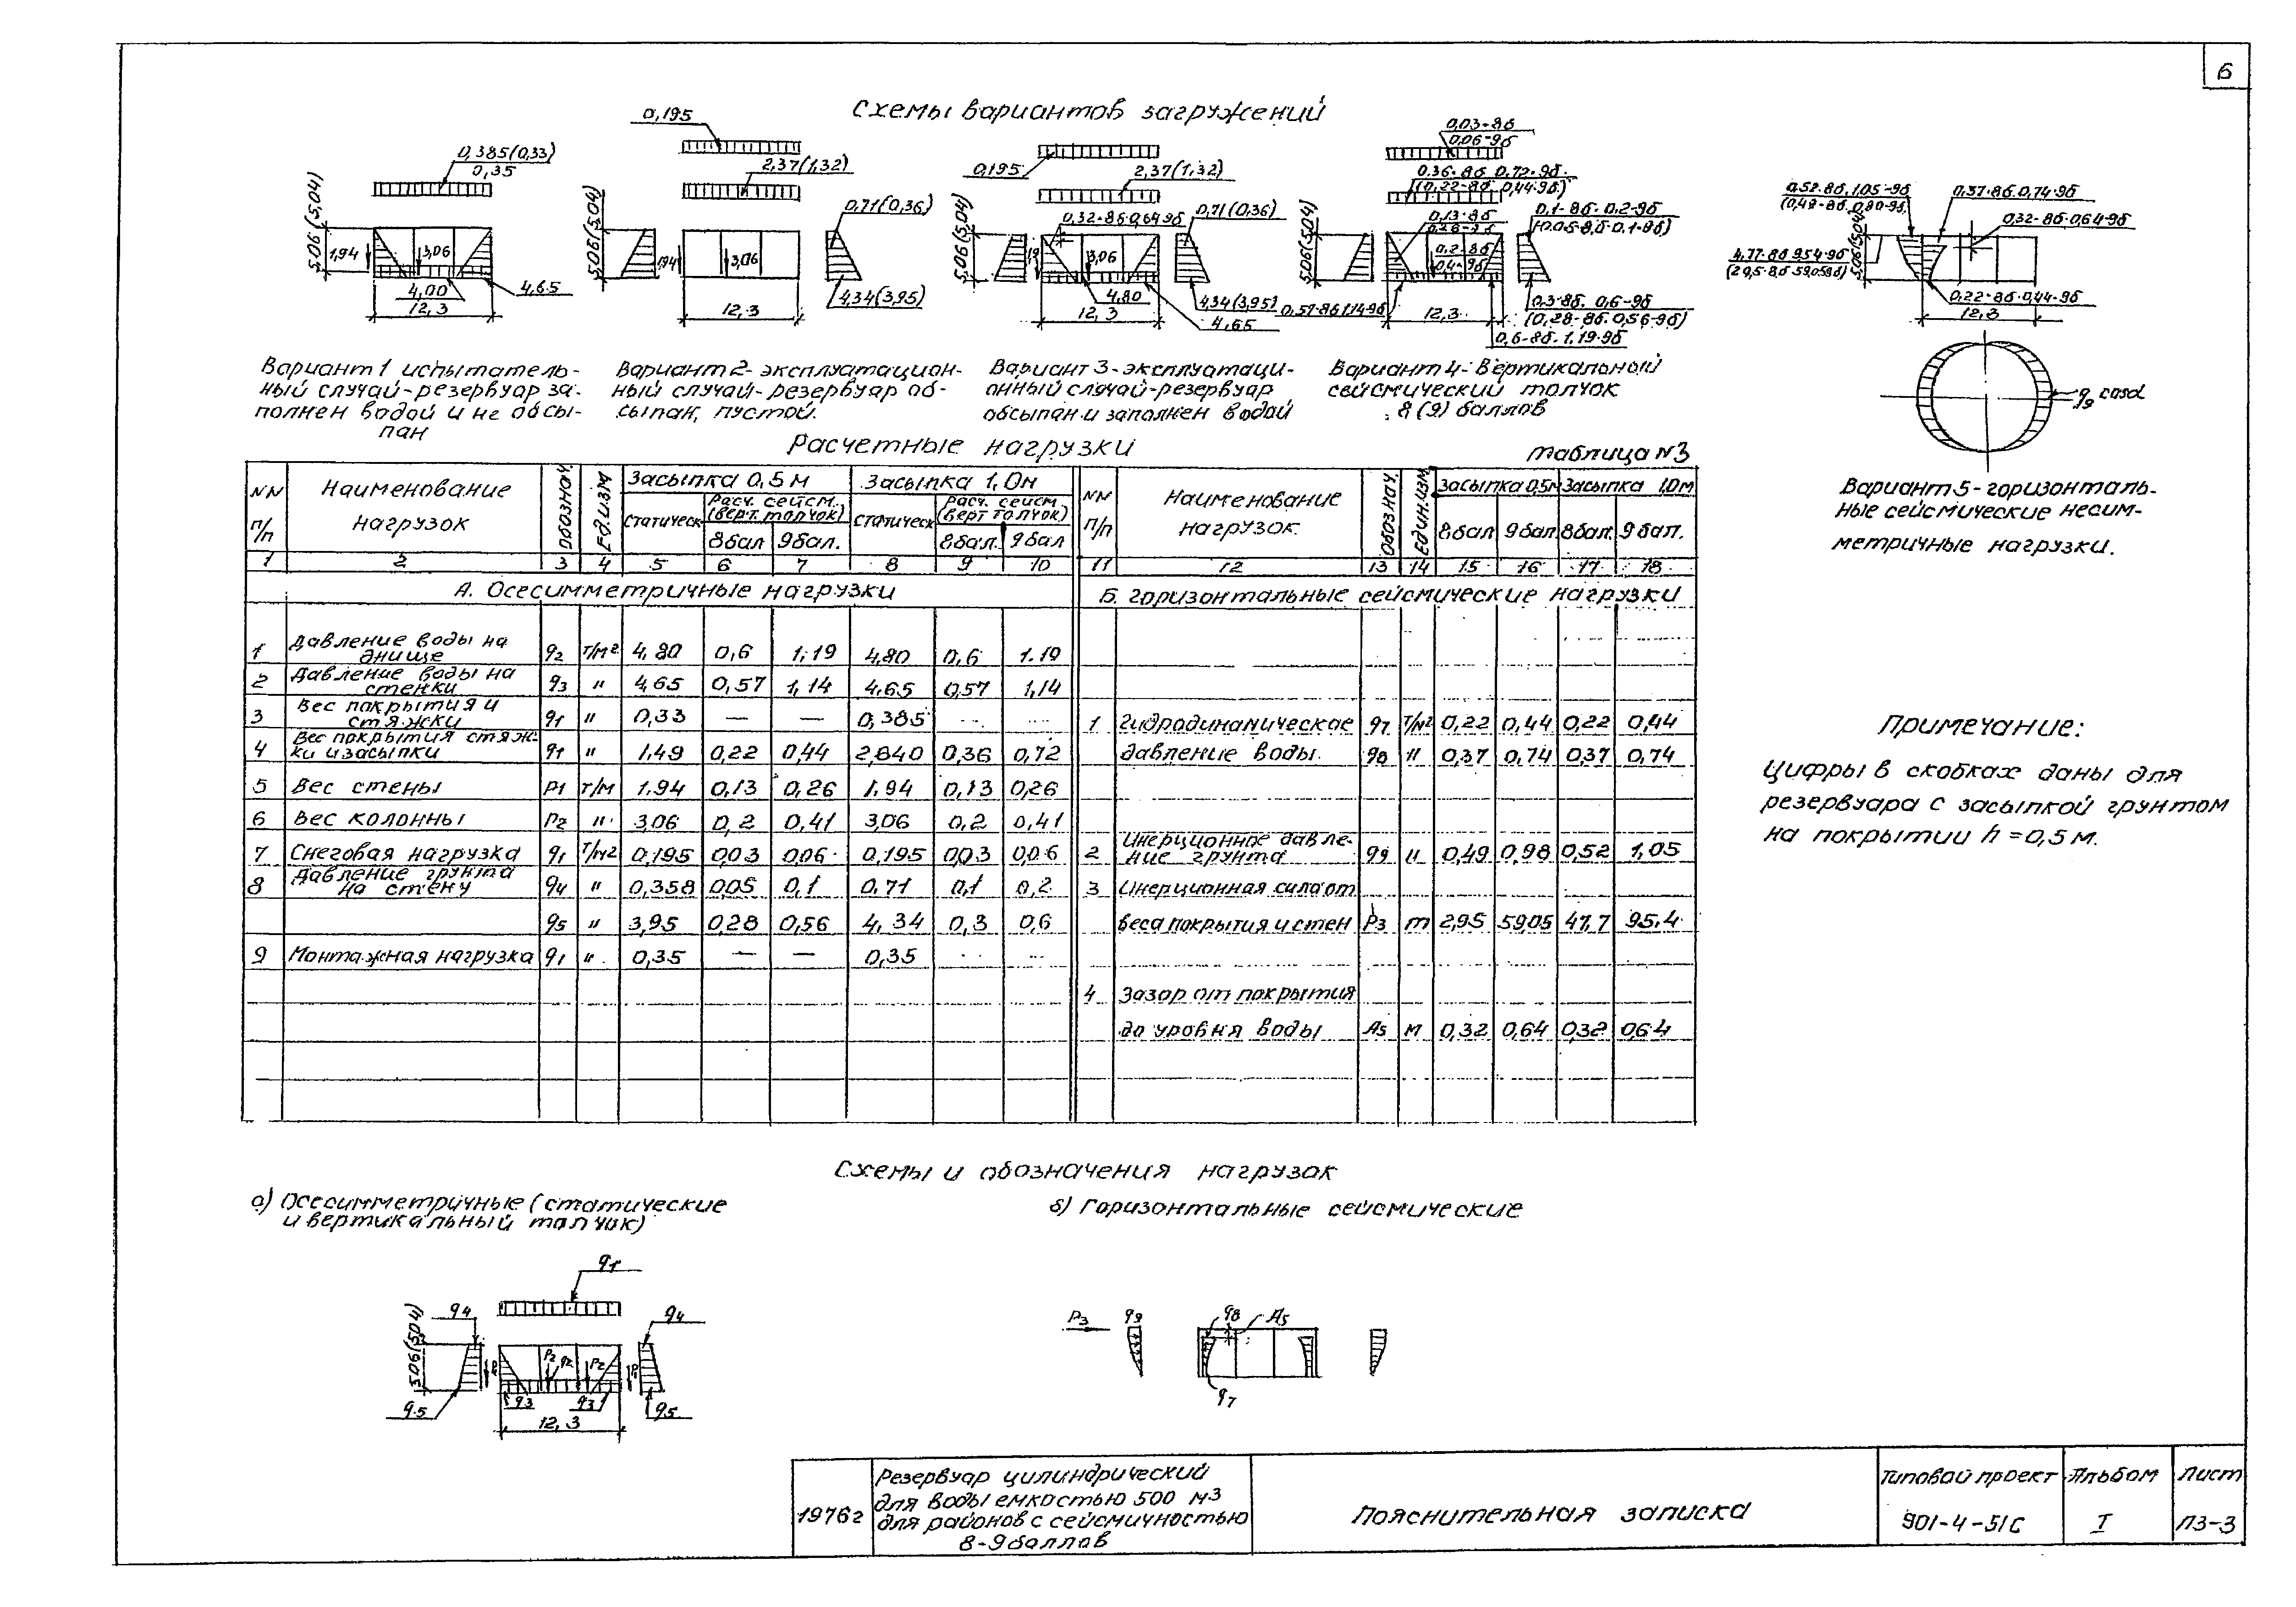 6
Схемы вариантов загружений
0,385(0,33)
0,35
5.06 (5,04)
1,94
3,06
4,00
4,65
12,3
0,195
2,37(1,32)
5.06 (5.04)
1,94
3,06
0,71(0,36)
4,34(3,95)
12.3
0,195
2,37(1,32)
5,06 (5,04)
0,32-8б.0,64-9б
0,71(0,36)
3,06
4,80
4,34(3,95)
4,65
12.3
0,03-8б
0,06-9б
0.36-8б 0.72-9б.
(0,22-8б. 0,44-9б)
5,06(5,04)
0,13-8б
0,26-9б
0,1-8б. 0,2-9б
(0.05-8,б-0.1-9б)
0.2-8б
0,4-9б
0,57-8б 1,14-9б
0,3-8б. 0,6-9б
(0,28-8б. 0,56-9б)
0,6-8б. 1,19-9б
12,3
0,52-8б. 1,05-9б
0,37-8б. 0,74-9б
0,32-8б-0,64-9б
4,77-8б 9,54-9б
5,06(5,04)
0,22-8б.0,44-9б
12,3
q9 cosα
Вариант 1 испытатель-
ный случай-резервуар за-
полнен водой и не обсы-
пан
Вариант 2- эксплуатацион-
ный случай- резервуар об-
сыпан, пустой.
Вариант 3-эксплуатаци-
онный случай-резервуар
обсыпан и заполнен водой
Вариант 4- Вертикальный
сейсмический толчок
8 (9) баллов
Вариант 5-горизонталь-
ные сейсмические несим-
метричные нагрузки.
Расчетные нагрузки
таблица N3
NN п/п Наименование нагрузок Обознач. Ед.изм Засыпка 0,5м Засыпка 1,0м NN п/п Наименование нагрузок. Обознач. Един.изм. Засыпка 0,5м Засыпка 1,0м
статическ Расч. сейсм. (верт. толчок) статическ Расч. сейсм (верт толчок)
8бал 9бал. 8бал. 9бал 8бал 9бал. 8бал. 9бал.
1 2 3 4 5 6 7 8 9 10 11 12 13 14 15 16 17 18
А. Осесимметричные нагрузки
Б. горизонтальные сейсмические нагрузки
1 Давление воды на днище q2 т/м2 4,80 0,6 1,19 4,80 0,6 1.19
2 Давление воды на стенки q3 " 4,65 0,57 1,14 4.65 0,57 1,14
3 Вес покрытия и стяжки q1 " 0,33 — — 0,385
4 Вес покрытия стяж-ки и засыпки q1 " 1.49 0,22 0,44 2,840 0,36 0,72
5 Вес стены P1 т/м 1.94 0,13 0,26 1.94 0,13 0,26
6 Вес колонны P2 " 3,06 0,2 0,41 3,06 0,2 0,41
7 Снеговая нагрузка q1 т/м2 0,195 0,03 0,06 0,195 0,03 0,06
8 Давление грунта на стену q4 " 0,358 0,05 0,1 0.71 0,1 0,2
q5 " 3,95 0,28 0,56 4,34 0,3 0,6
9 Монтажная нагрузка q1 " 0,35 — — 0,35
1 Гидродинамическое q7 т/м2 0,22 0,44 0,22 0,44
давление воды. q8 " 0,37 0,74 0,37 0,74
2 Инерционное давле-ние грунта q9 " 0,49 0,98 0,52 1,05
3 Инерционная сила от
веса покрытия и стен P3 т 29,5 59,05 47,7 95,4
4 Зазор от покрытия
до уровня воды A5 м 0,32 0,64 0,32 0,64
Примечание:
Цифры в скобках даны для
резервуара с засыпкой грунтом
на покрытии h = 0,5 м.
Схемы и обозначения нагрузок
а) Осесимметричные (статические
и вертикальный толчок)
б) Горизонтальные сейсмические
q1
q4
q4
5.06 (5,04)
P2
q2
P2
q3
q3
q5
q5
12,3
P3
q9
q8
A5
q7
1976г
Резервуар цилиндрический
для воды емкостью 500 м3
для районов с сейсмичностью
8-9 баллов
Пояснительная записка
Типовой проект
901-4-51с
Альбом
I
Лист
ПЗ-3